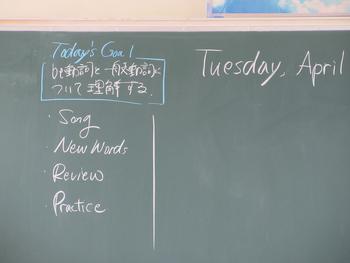 Today's Goal
be動詞と一般動詞に
ついて理解する.
・Song
・New Words
・Review
・Practice
Tuesday, April